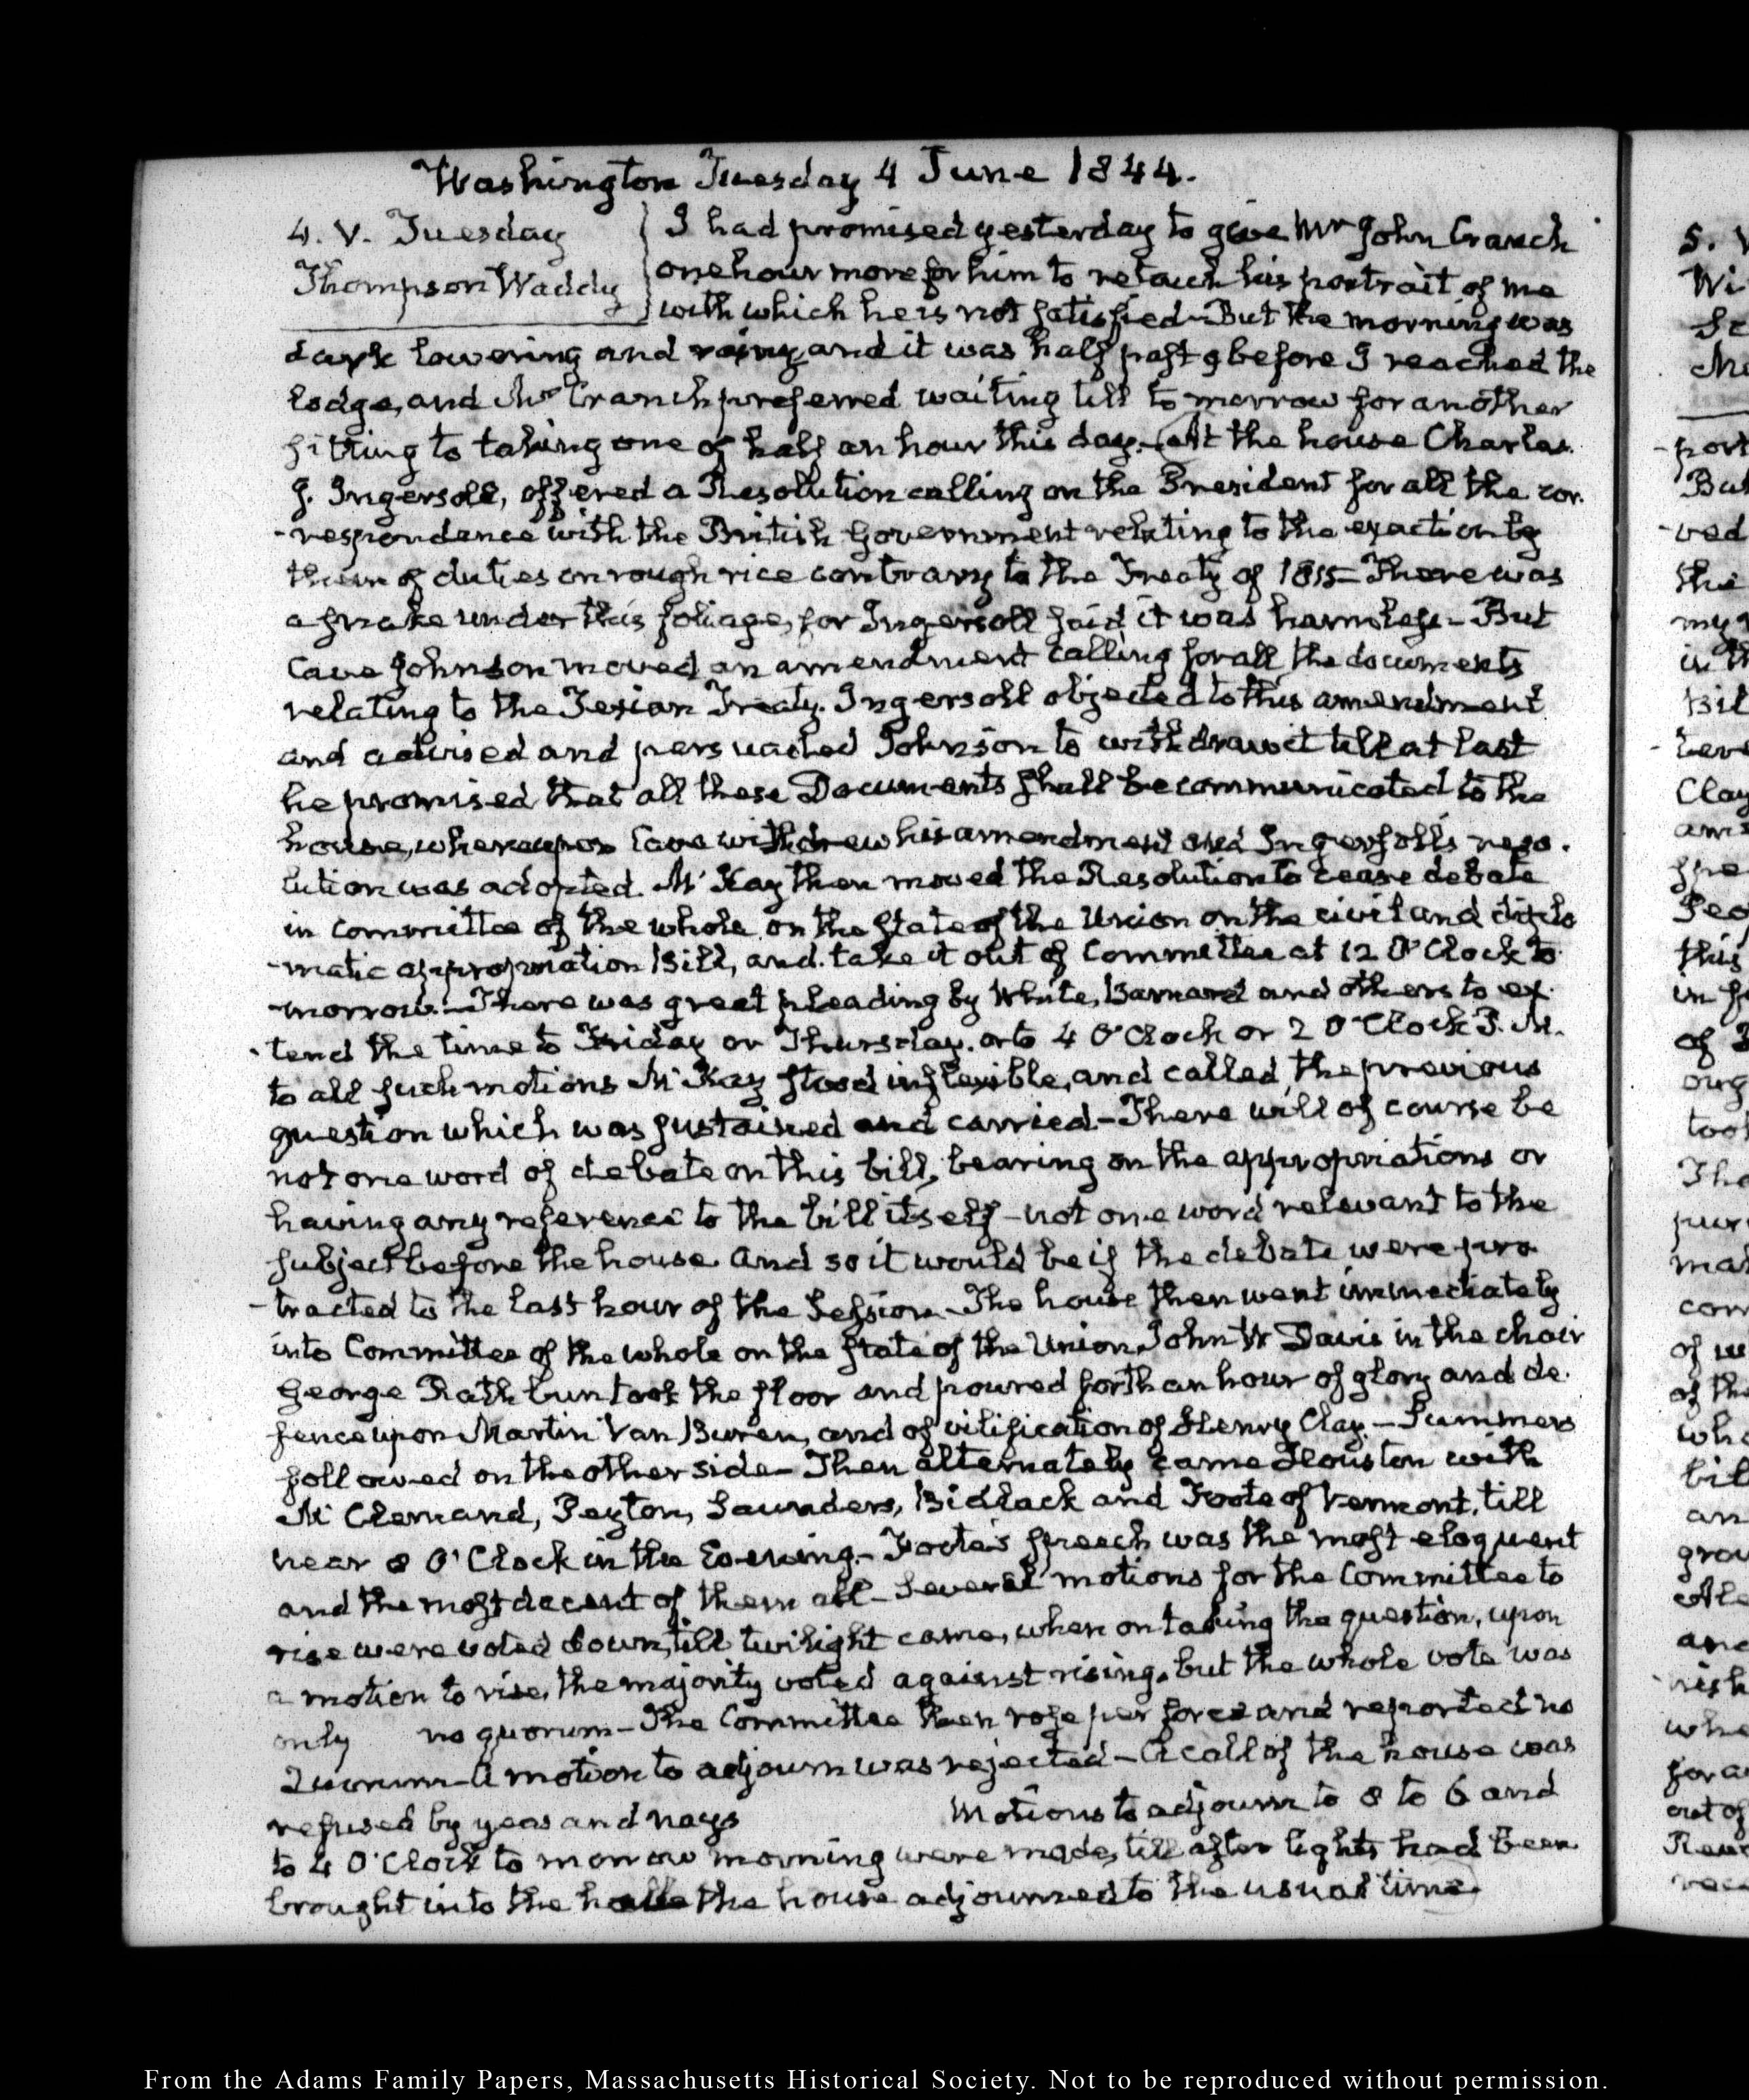 Washington Tuesday 4 June 1844.
4. V. Tuesday
Thompson Waddy
I had promised yesterday to give Mr John Cranch
one hour more for him to retouch his portrait of me
with which he is not satisfied - But the morning was
dark lowering and rainy and it was half past 9 before I reached the
lodge, and Mr Cranch preferred waiting till to morrow for another
sitting to taking one of half an hour this day. At the house Charles
J. Ingersoll, offered a Resolution calling on the President for all the cor-
-respondence with the British Government relating to the exaction by
them of duties on rough rice contrary to the Treaty of 1815 - There was
a snake under this foliage, for Ingersoll said it was harmless - But
Cave Johnson moved an amendment calling for all the documents
relating to the Texian Treaty. Ingersoll objected to this amendment
and advised and persuaded Johnson to withdraw it till at last
he promised that all these Documents shall be communicated to the
house, whereupon Cave withdrew his amendment and Ingersoll's reso-
lution was adopted. McKay then moved the Resolution to cease debate
in committee of the whole on the state of the Union on the civil and diplo
-matic appropriation Bill, and take it out of Committee at 12 O'Clock to
-morrow. - There was great pleading by White, Barnard and others to ex-
-tend the time to Friday or Thursday. or to 4 O'Clock or 2 O'Clock P.M.
to all such motions McKay stood inflexible, and called the previous
question which was sustained and carried - There will of course be
not one word of debate on this bill, bearing on the appropriations or
having any reference to the bill itself - not one word relevant to the
subject before the house. And so it would be if the debate were pro
-tracted to the last hour of the Session - The house then went immediately
into Committee of the whole on the state of the Union, John W Davis in the chair
George Rathbun took the floor and poured forth an hour of glory and de-
fence upon Martin Van Buren, and of vilification of Henry Clay. - Summers
followed on the other side - Then alternately came Houston with
McClernand, Peyton, Saunders, Bidlack and Foote of Vermont, till
near 8 O'Clock in the Evening. - Foote's speech was the most eloquent
and the most decent of them all - Several motions for the Committee to
rise were voted down, till twilight came, when on taking the question, upon
a motion to rise, the majority voted against rising, but the whole vote was
only no quorum - The Committee then rose per force and reported no
Quorum - A motion to adjourn was rejected - A call of the house was
refused by yeas and nays Motions to adjourn to 8 to 6 and
to 4 O'Clock to morrow morning were made, till after lights had been
brought into the hall the house adjourned to the usual time.
5. V
Wi
Se
-port
Bu
-ved
the
my
in th
Bil
Clay
am
spe
Peo
this
in
of
too
Tho
pur
mat
com
of
of the
who
bil
an
grou
and
whe
for a
out of
From the Adams Family Papers, Massachusetts Historical Society. Not to be reproduced without permission.